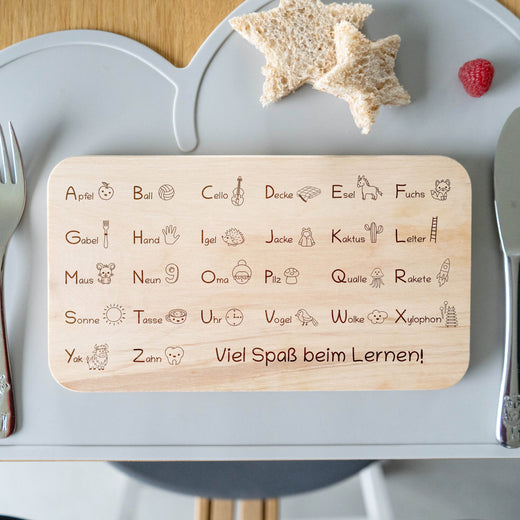 Apfel Ball Cello Decke Esel Fuchs
Gabel Hand Igel Jacke Kaktus Leiter
Maus Neun 9 Oma Pilz Qualle Rakete
Sonne Tasse Uhr Vogel Wolke Xylophon
Yak Zahn Viel Spaß beim Lernen!